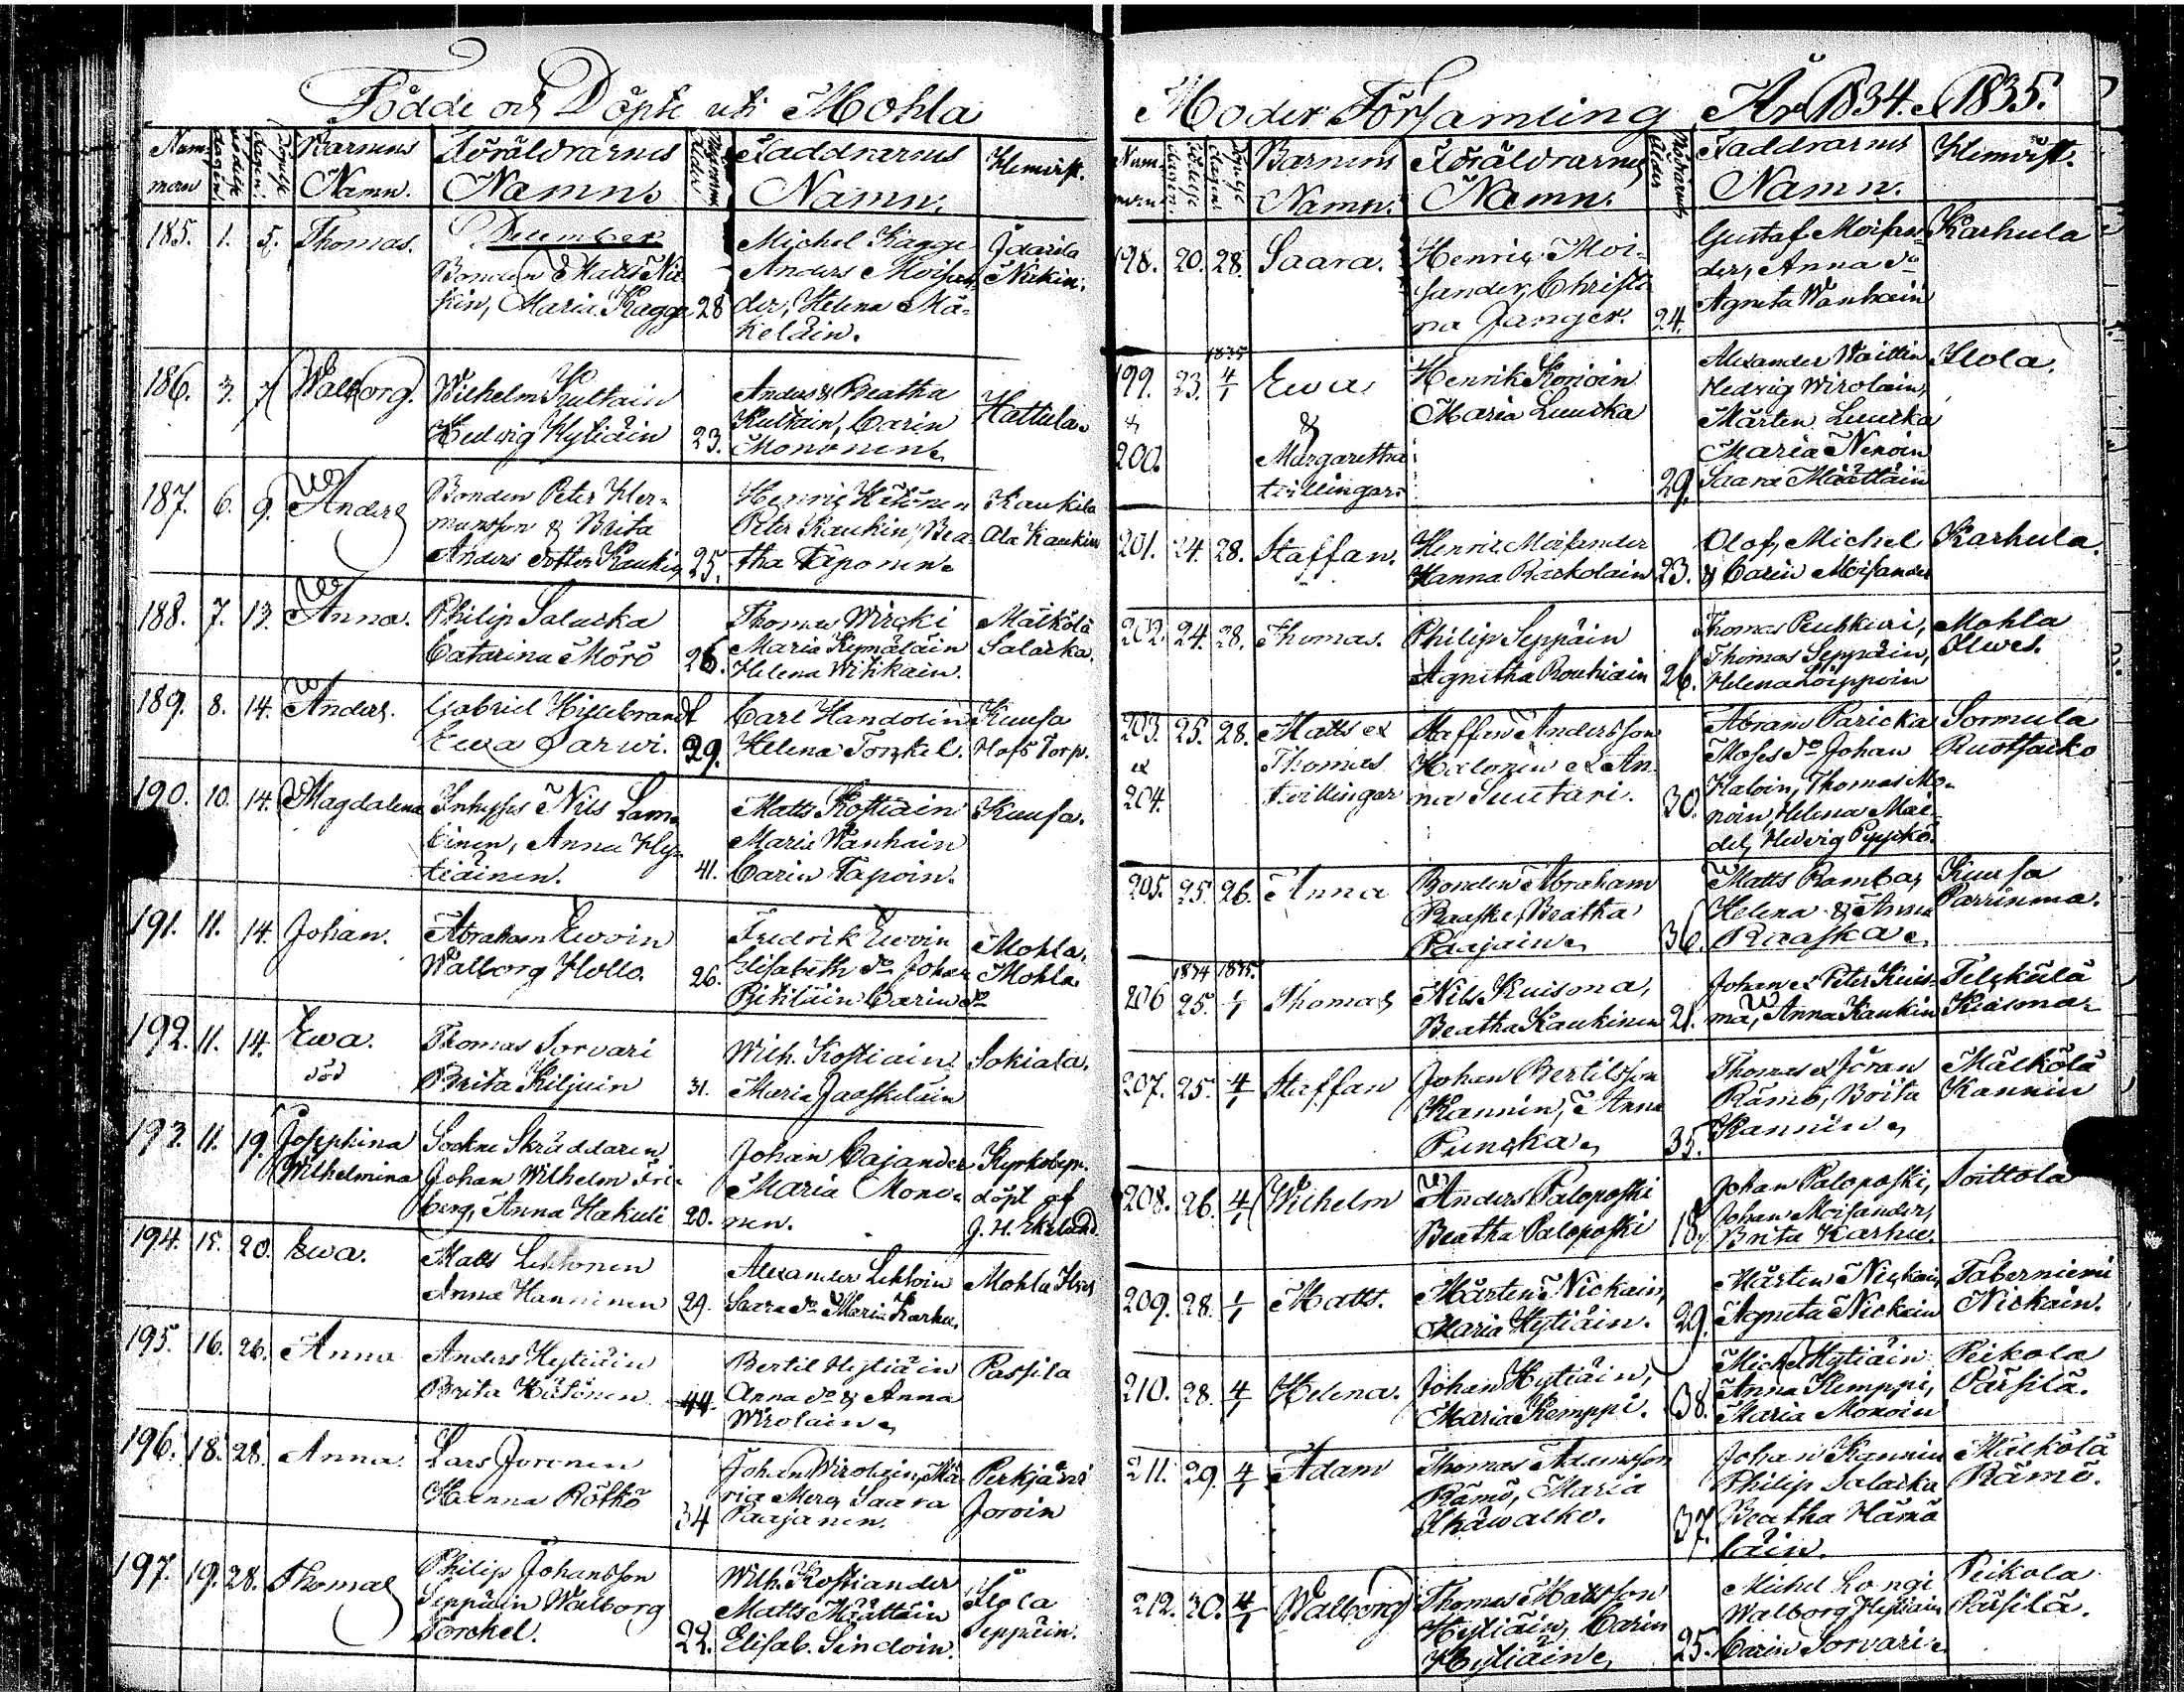 Födde och Döpte uti Mohla
Num-
mern
Födelse
dagen
Barnens
Namn.
Föräldrarnes
Namn.
Faddrarnes
Namn.
Hemvist.
December
185. 1. 5. Thomas.
Bonden Matts Nic-
kin, Maria Kagge 28
Michel Kagge
Anders Moisan-
der, Helena Mä-
keläin.
186. 3. 7. Walborg.
Wilhelm Kultain
Hedvig Hytiäin 23.
Anders & Beatha
Kultain, Carin
Mononen.
Hattula.
187. 6. 9. Anders
Bonden Peter Her-
mansson & Brita
Anders dotter Kaukin 25.
Henric Hätönen
Peter Kaukin, Bea-
tha Taponen.
Kaukila
Ala Kaukin
188. 7. 13. Anna.
Philip Salacka
Catarina Mörö 26.
Thomas Wirçki
Maria Kymäläin
Helena Wihkain.
Mälkölä
Salacka.
189. 8. 14. Anders.
Gabriel Hillebrandt
Ewa Sarwi. 29.
Carl Handolin
Helena Torckel.
Kuusa
Hofs Torp.
190. 10. 14. Magdalena
Inhyses Nils Lam-
binen, Anna Hy-
tiäinen. 41.
Matts Kostiain
Maria Wanhain
Carin Tapoin.
Kuusa.
191. 11. 14. Johan.
Abraham Ewoin
Walborg Hollo. 26.
Fredrik Ewoin
Elisabeth do Johan
Pitiläin Carin do
Mohla.
Mohla
192. 11. 14. Ewa.
död
Thomas Sorvari
Brita Kiljuin 31.
Wilh. Kostiain
Maria Jaaskeläin
Sokiala.
193. 11. 19. Josephina
Wilhelmina
Sockne Skräddaren
Johan Wilhelm Fri-
berg, Anna Hakuli 20.
Johan Cajander
Maria Mono-
nen.
Kyrkobyn.
döpt af
J. H. Ekelund.
194. 15. 20. Ewa.
Matts Lehtonen
Anna Hanninen 29.
Alexander Lehtoin
Saara do Maria Karhu.
Mohla Ilves
195. 16. 26. Anna
Anders Hytiäin
Brita Hätönen 44.
Bertil Hytiäin
Anna do & Anna
Wirolain.
Passila
196. 18. 28. Anna
Lars Joronen
Hanna Rötkö 34
Johan Wirolain, Ma-
ria Merç Saara
Paajanen.
Perkjärvi
Joroin
197. 19. 28. Thomas
Philip Johansson
Seppäin Walborg
Torckel. 22.
Wilh. Kostiander
Matts Määttäin
Elisab. Sindoin.
Seppäin.
Moder Församling År 1834. & 1835.
Num-
mern
Barnens
Namn.
Föräldrarnes
Namn.
Faddrarnes
Namn.
Hemvist.
198. 20. 28. Saara.
Henric Moi-
sander, Christi
na Janger. 24.
Gustaf Moisan-
der, Anna do
Agneta Wanhain
Karhula
1835
199. 23. 4/1 Ewa
&
200.
&
Margaretha
tvillingar
Henrik Konoin
Maria Luucka 29.
Alexander Waittin
Hedvig Wirolain,
Mårten Luucka
Maria Nenoin
Saara Määttäin
Ilola.
201. 24. 28. Staffan.
Henric Moisander
Hanna Raskolain 23.
Olof, Michel
& Carin Moisander
Karhula.
202. 24. 28. Thomas.
Philip Seppäin
Agnetha Rouhiain 26.
Thomas Pusskuri,
Thomas Seppäin,
Helena Loippoin
Mohla
Ilwes.
203. 25. 28. Matts &
&
204.
Thomas
tvillingar
Staffan Andersson
Halonen & An-
na Suutari. 30.
Abram Paricka
Moses do Johan
Haloin, Thomas Mo-
noin, Helena Mai-
del, Hedvig Pyyckö.
Sormula
Ruotsacko
205. 25. 26. Anna
Bonden Abraham
Raaska, Beatha
Paajain. 36.
Matts Ramba,
Helena & Anna
Raaska.
Kuusa
Parrinma.
1834 1835.
206 25. 1/1 Thomas
Nils Kuisma,
Beatha Kaukinen 21.
Johan & Peter Kuis-
ma, Anna Kaukin
Telckälä
Kuisma.
207. 25. 4/1 Staffan
Johan Bertilsson
Kannin, Anna
Puncka. 35.
Thomas & Jöran
Rämö, Brita
Kannin.
Mälkölä
Kannin
208. 26. 4/1 Wilhelm
Anders Paloposki
Beatha Paloposki 18.
Johan Paloposki,
Johan Moisander,
Brita Karhu.
Soittola
209. 28. 1/1 Matts.
Mårten Nickain,
Maria Hytiäin. 29.
Mårten Nickain,
Agneta Nickain
Taberniemi
Nickain.
210. 28. 4/1 Helena.
Johan Hytiäin,
Maria Kemppi. 38.
Michel Hytiäin
Anna Kemppi,
Maria Monoin
Peikola
Pärsilä.
211. 29. 4/1 Adam
Thomas Adamsson
Rämö, Maria
Ikäwalko. 37.
Johan Kannin
Philip Salacka
Beatha Hämä
läin.
Mälkölä
Rämö.
212. 30. 4/1 Walborg
Thomas Mattsson
Hytiäin, Carin
Hytiäin. 25.
Michel Longi
Walborg Hytiäin
Carin Sorvari.
Peikola
Päisilä.